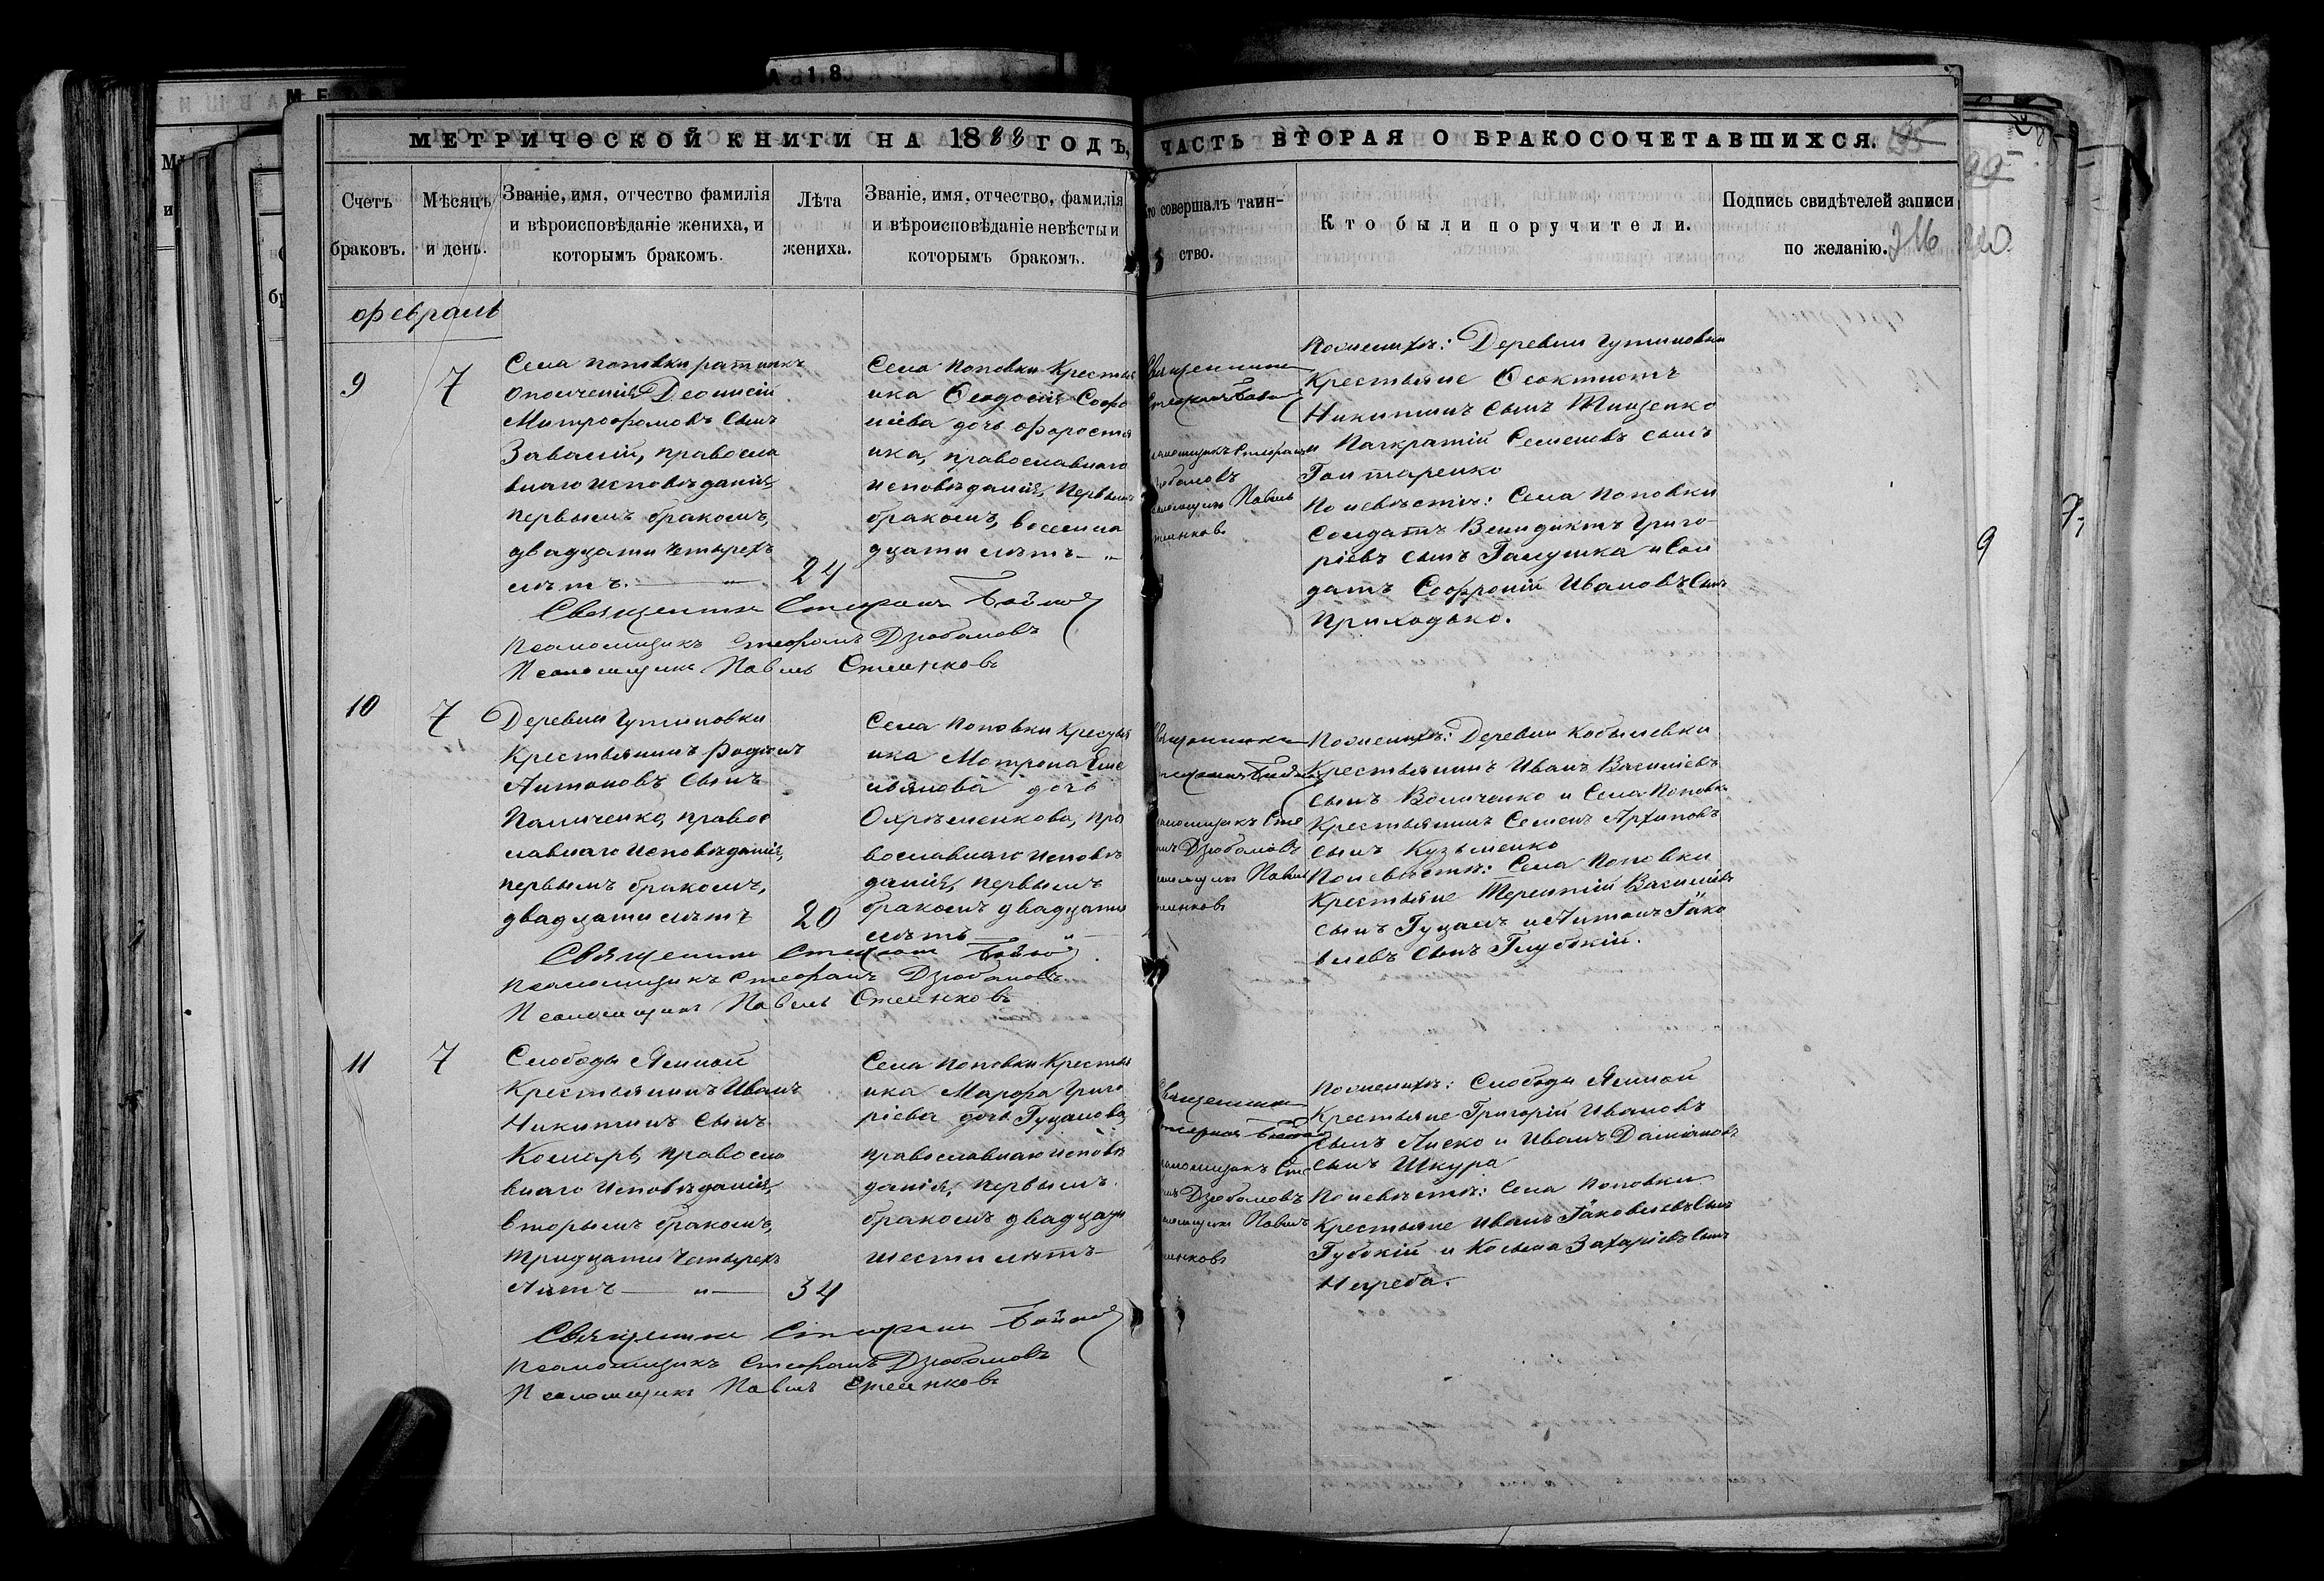 МЕТРИЧЕСКОЙ КНИГИ НА 1888 ГОДЪ, ЧАСТЬ ВТОРАЯ О БРАКОСОЧЕТАВШИХСЯ.
Счетъ браковъ.
Мѣсяцъ и день.
Званіе, имя, отчество фамилія
и вѣроисповѣданіе жениха, и
которымъ бракомъ.
Лѣта
жениха.
Званіе, имя, отчество, фамилія
и вѣроисповѣданіе невѣсты и
которымъ бракомъ.
совершалъ таин-
ство.
Кто были поручители.
Подпись свидѣтелей записи
по желанію.
216
февраль
9
7
Села Поповки ратникъ
ополченія Деонисій
Митрофановъ сынъ
Завалій, правосла
внаго исповѣданія,
первымъ бракомъ,
двадцати четырехъ
лѣтъ.
24
Села Поповки Крестья
нка Феодосія Софро
ніева дочь Форостя
нка, православнаго
исповѣданія, первымъ
бракомъ, восемна
дцати лѣтъ
Священникъ
Стефанъ
Дзюбановъ
Павелъ
По женихѣ: Деревни Гутиновки
Крестьяне Феоктистъ
Никитинъ сынъ Тищенко
и Панкратій Семеновъ сынъ
Гонтаренко
По невѣстѣ: Села Поповки
Солдатъ Венидиктъ Григо-
ріевъ сынъ Галушка и Сол
датъ Софроній Ивановъ сынъ
Приходько.
Священникъ Стефанъ Бойко
Псаломщикъ Стефанъ Дзюбановъ
Псаломщикъ Павелъ
10
7
Деревни Гутиновки
Крестьянинъ Родіонъ
Антоновъ сынъ
Паличенко, правос
лавнаго исповѣданія,
первымъ бракомъ,
двадцати лѣтъ
20
Села Поповки Крестья
нка Мотрона Еме
льянова дочь
Охрѣменкова, пра
вославнаго исповѣ
данія, первымъ
бракомъ двадцати
лѣтъ
Дзюбановъ
Павелъ
По женихѣ: Деревни Кобылевки
Крестьянинъ Иванъ Василіевъ
сынъ Величенко и Села Поповки
Крестьянинъ Семенъ Архиповъ
сынъ Кузьменко
По невѣстѣ: Села Поповки
Крестьяне Терентій Василіевъ
сынъ Гуцанъ и Антонъ Яко
влевъ сынъ Глубокій.
Священникъ Стефанъ Бойко
Псаломщикъ Стефанъ Дзюбановъ
Псаломщикъ Павелъ
11
7
Слободы Ямной
Крестьянинъ Иванъ
Никитинъ сынъ
Комаръ, правосла
внаго исповѣданія,
вторымъ бракомъ,
тридцати четырехъ
лѣтъ
34
Села Поповки Крестья
нка Марфа Григо
ріева дочь Гуцанова,
православнаго исповѣ
данія, первымъ
бракомъ двадцати
шести лѣтъ
Дзюбановъ
Павелъ
По женихѣ: Слободы Ямной
Крестьяне Григорій Ивановъ
сынъ Лиско и Иванъ Даміановъ
сынъ Шкура
По невѣстѣ: Села Поповки
Крестьяне Иванъ Яковлевъ сынъ
Губокій и Косьма Захаріевъ сынъ
Негреба.
Священникъ Стефанъ Бойко
Псаломщикъ Стефанъ Дзюбановъ
Псаломщикъ Павелъ